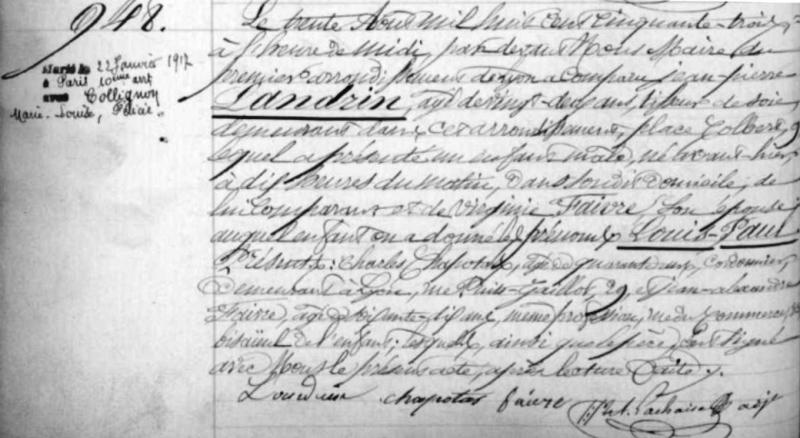 948.
Marié le 22 Janvier 1917
à Paris 10ème arrt
avec Collignon
Marie-Louise, Félicie.
Le trente Août mil huit cent cinquante-trois,
à l'heure de midi, par devant Nous Maire du
premier arrondissement de Lyon a comparu jean-pierre
Landrin, agé de vingt-deux ans, tisseur de soie,
demeurant dans cet arrondissement, place Colbert, 9
lequel a présenté un enfant male, né avant-hier
à dix heures du matin, dans son dit domicile, de
lui comparant et de Virginie Faivre, son épouse;
auquel enfant on a donné les prénoms Louis-Paul
Présents: Charles Chapotat, agé de quarante ans, cordonnier,
demeurant à Lyon, rue Puits-Gaillot, 29, et Jean-alexandre
Faivre, agé de soixante-dix ans, même profession, rue du Commerce,
bisaïeul de l'enfant; lesquels, ainsi que le père, ont signé
avec Nous le présent acte, après lecture faite.
Landrin chapotat faivre adjt